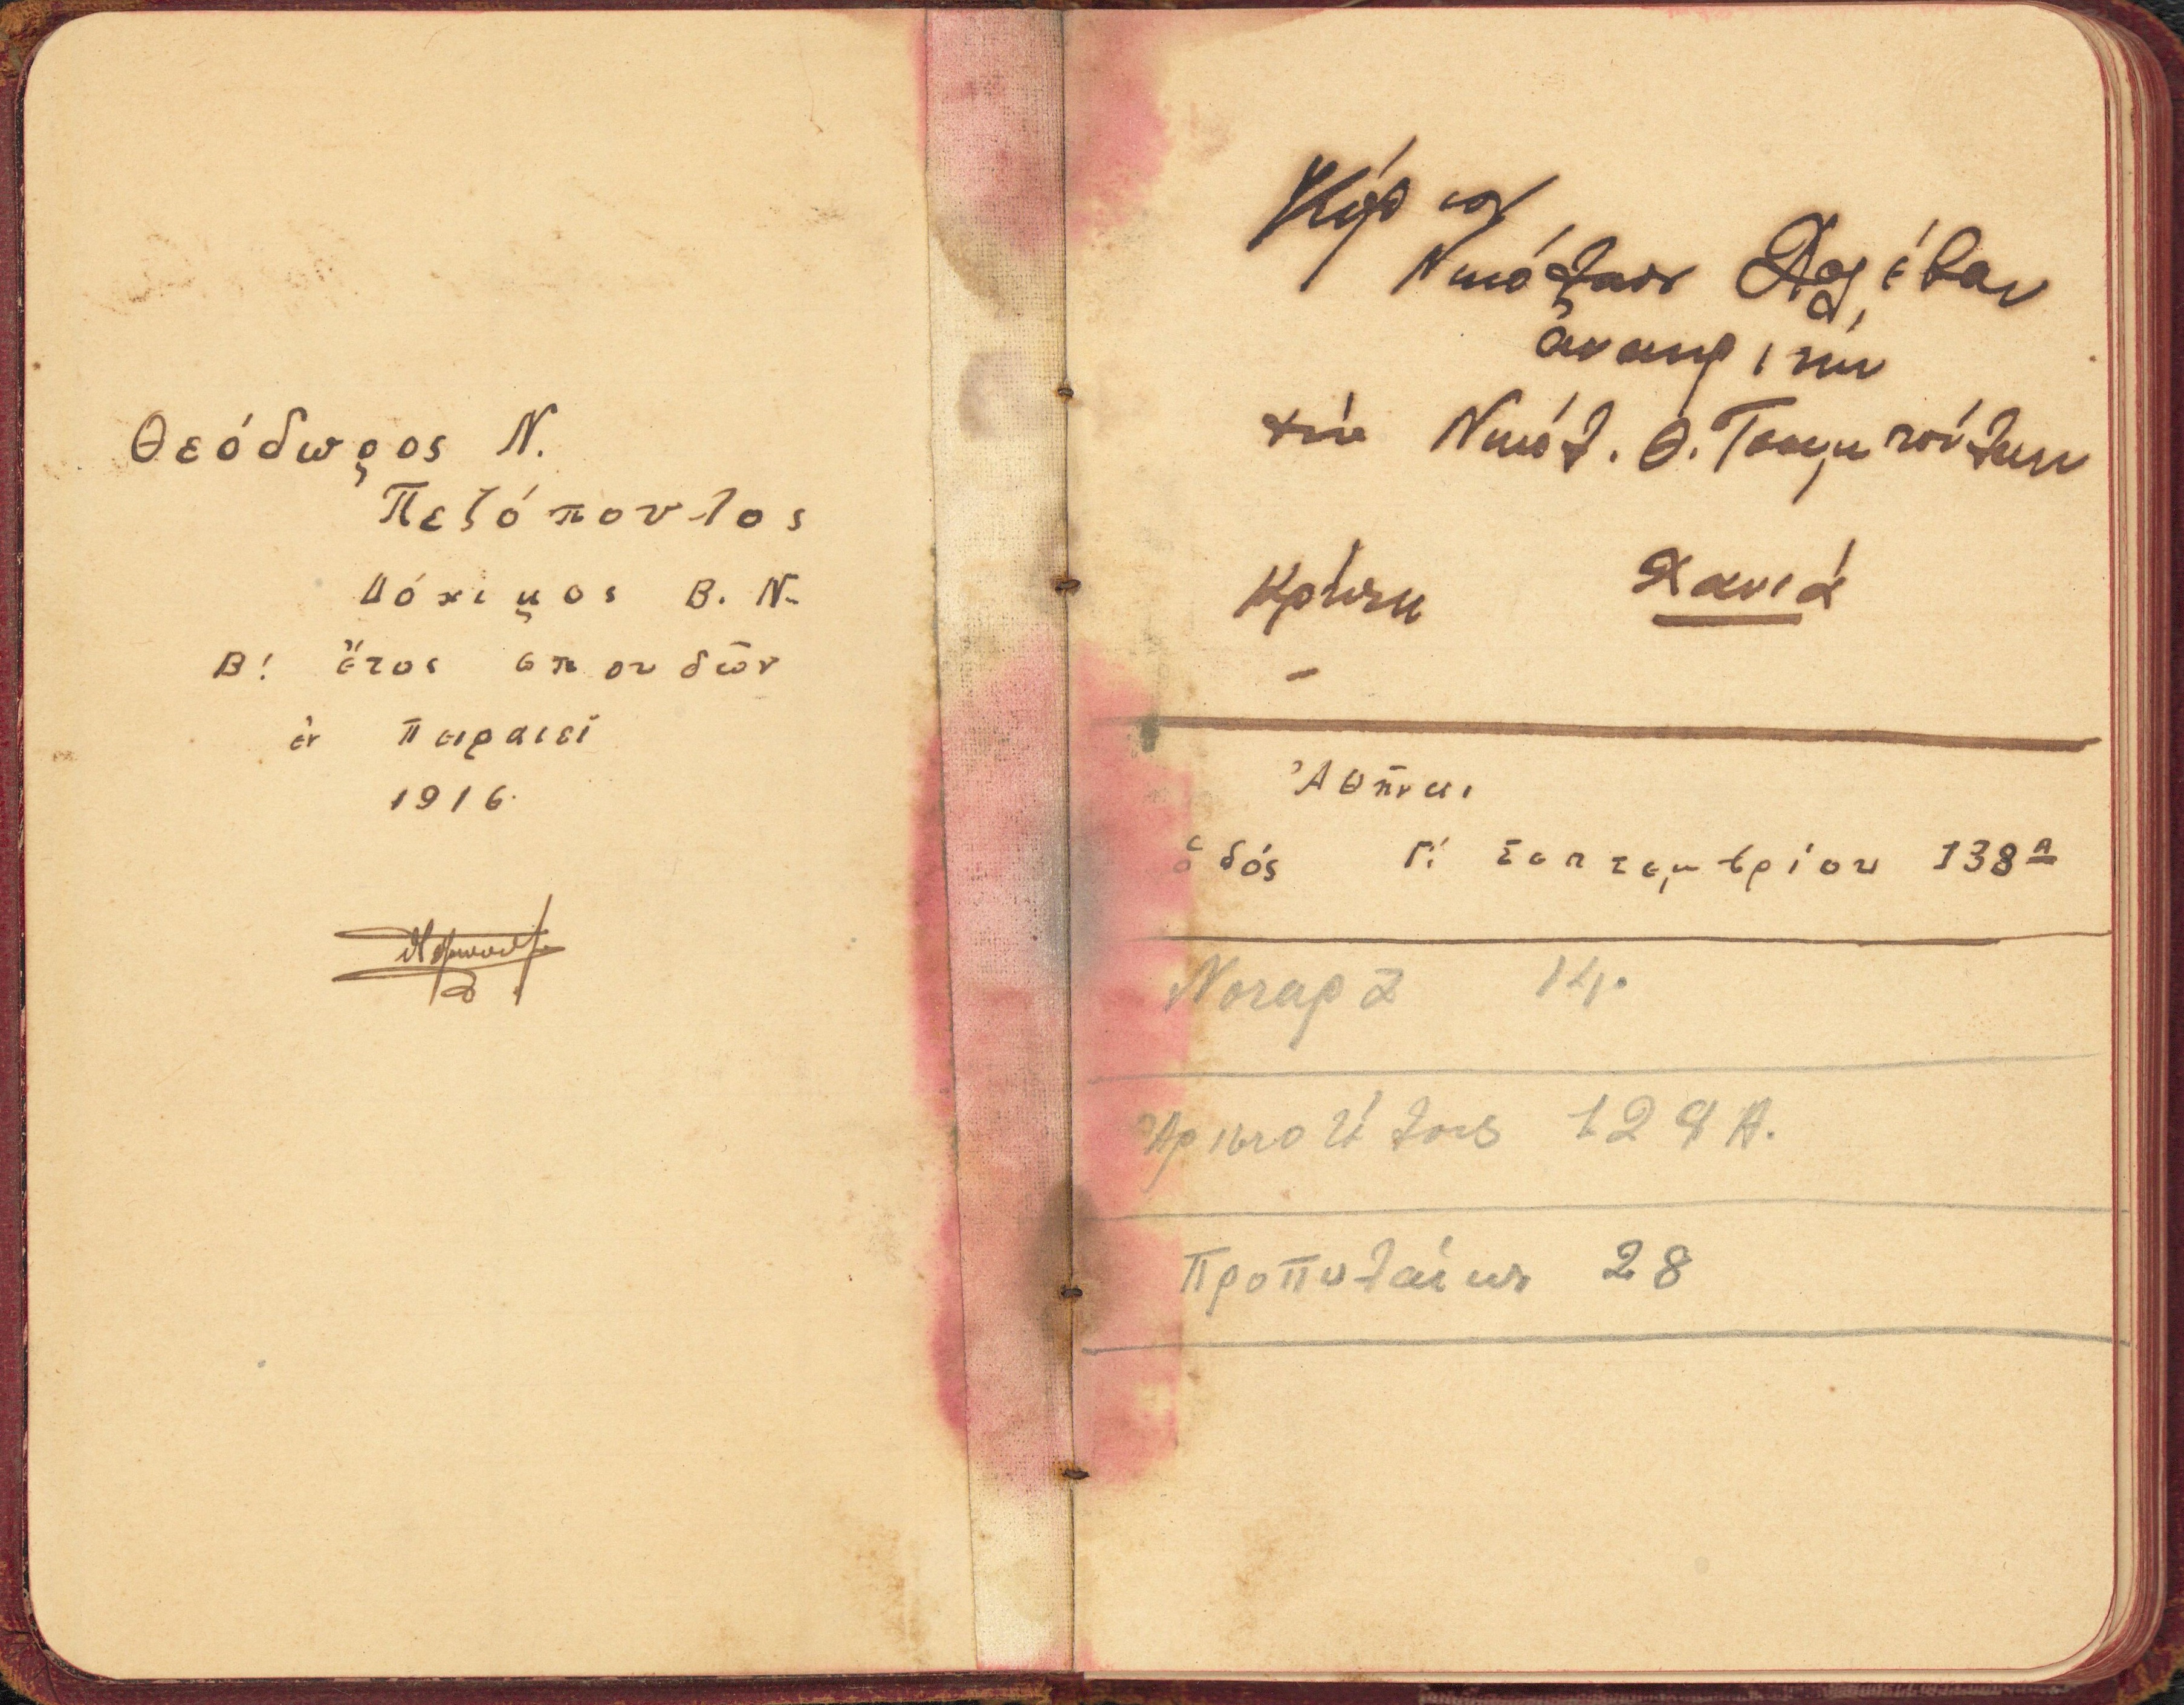 Θεόδωρος Ν.
Πεζόπουλος
Δόκιμος Β. Ν.
Β! ἔτος σπουδῶν
ἐν Πειραιεῖ
1916.
Κύριον
Νικόλαον
ἀνακριτήν
διά Νικόλ. Θ.
Κρήτη Χανιά
Ἀθῆναι
ὁδός Γ! Σεπτεμβρίου 138 Α
Νοταρᾶ 14.
Ἀριστοτέλους 129 Α.
Προπυλαίων 28